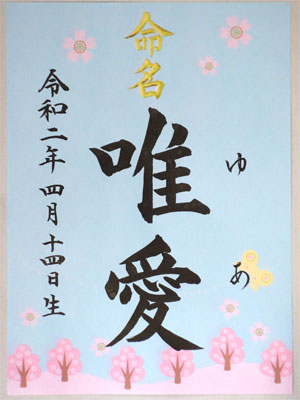 命名
唯愛
ゆあ
令和二年 四月 十四日生